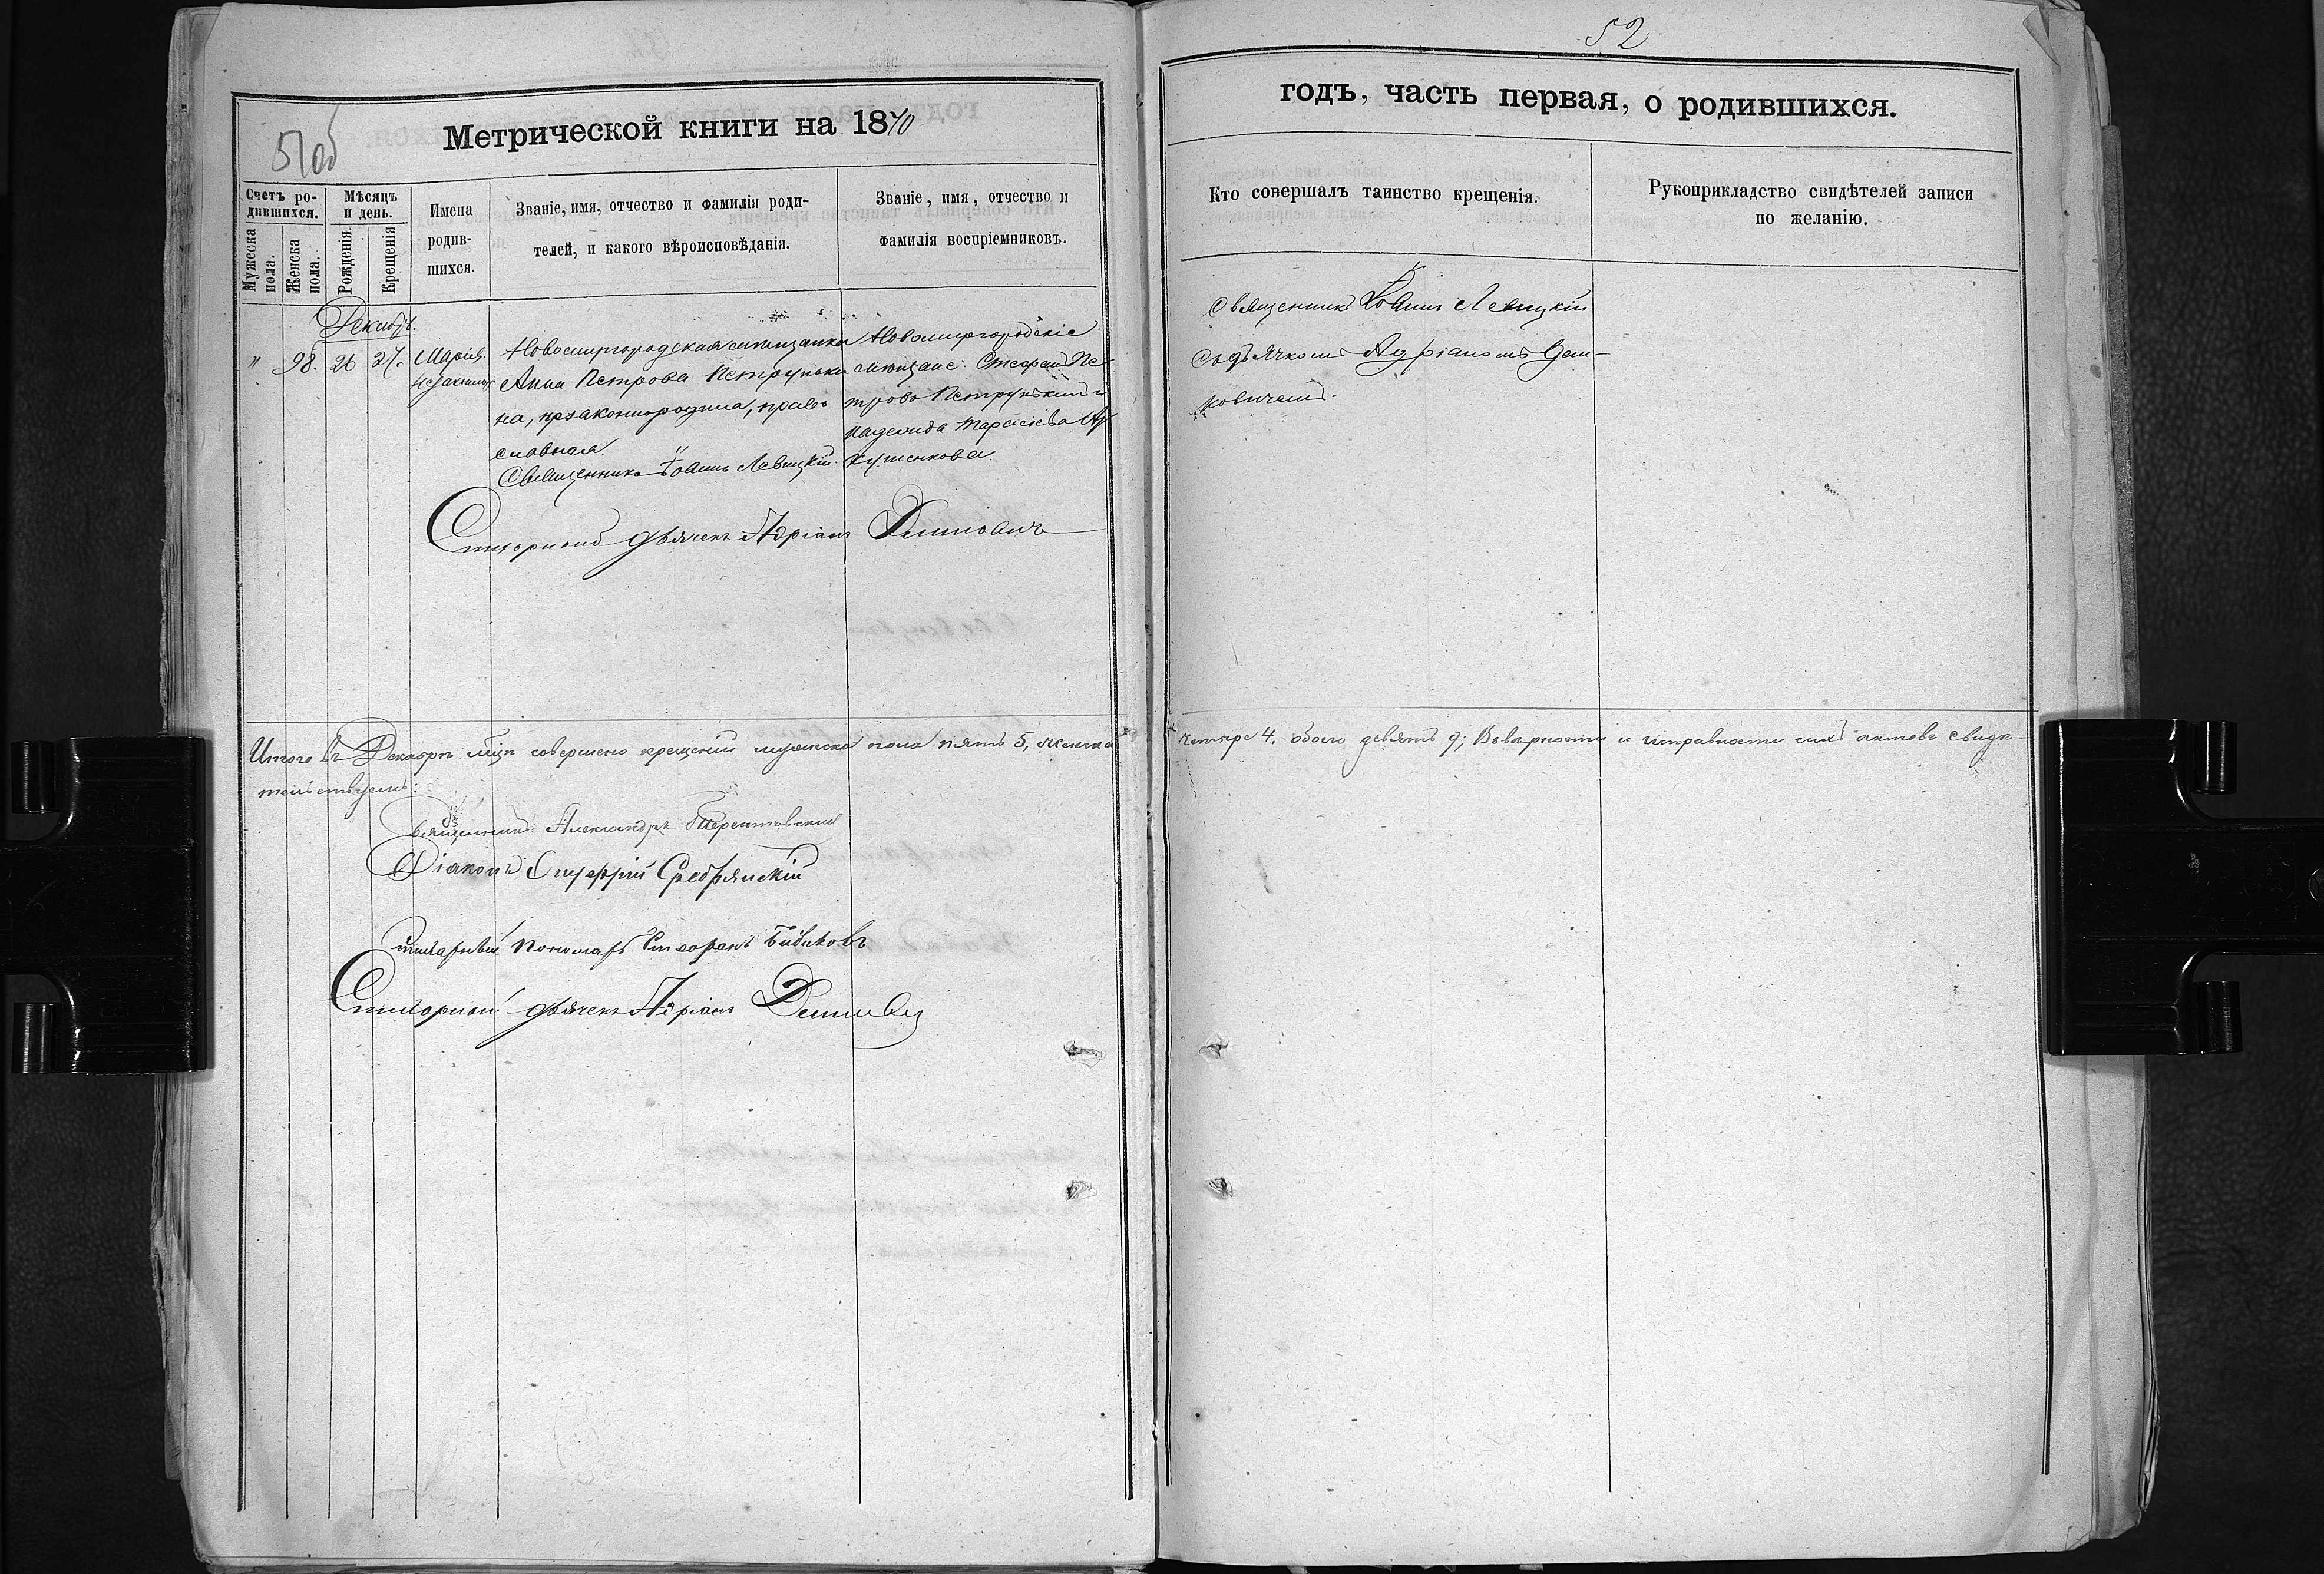 52
51об
Метрической книги на 1870
годъ, часть первая, о родившихся.
Счетъ ро-
дившихся.
Мужеска
пола.
Женска
пола.
Мѣсяцъ
и день.
Рожденія.
Крещенія
Имена
родив-
шихся.
Званіе, имя, отчество и фамилія роди-
телей, и какого вѣроисповѣданія.
Званіе, имя, отчество и
фамилія воспріемниковъ.
Кто совершалъ таинство крещенія.
Рукоприкладство свидѣтелей записи
по желанію.
Декабр.
" 98. 26 27. Марія
Новомиргородская мѣщанка
Анна Петрова Петрунъки
на, незаконнорожд, право
славная.
Священникъ Іоаннъ Левицкій.
Новомиргородскіе
мѣщане: Стефанъ Пе
трова Петрунъкинъ и
Надежда Тарасіева
Священникъ Іоаннъ Левицкій
съ дьячкомъ Адріаномъ Дем-
ковичемъ.
дьячекъ Адріанъ
Итого въ Декабрѣ мцѣ совершено крещеній мужеска пола пять 5, женска
четыре 4. обоего девять 9; Въ вѣрности и исправности сихъ актовъ свидѣ-
тельствуемъ:
Священникъ Александръ
Діаконъ Онуфрій Сребрянскій
пономарь Стефанъ Бибиковъ
дьячекъ Адріанъ